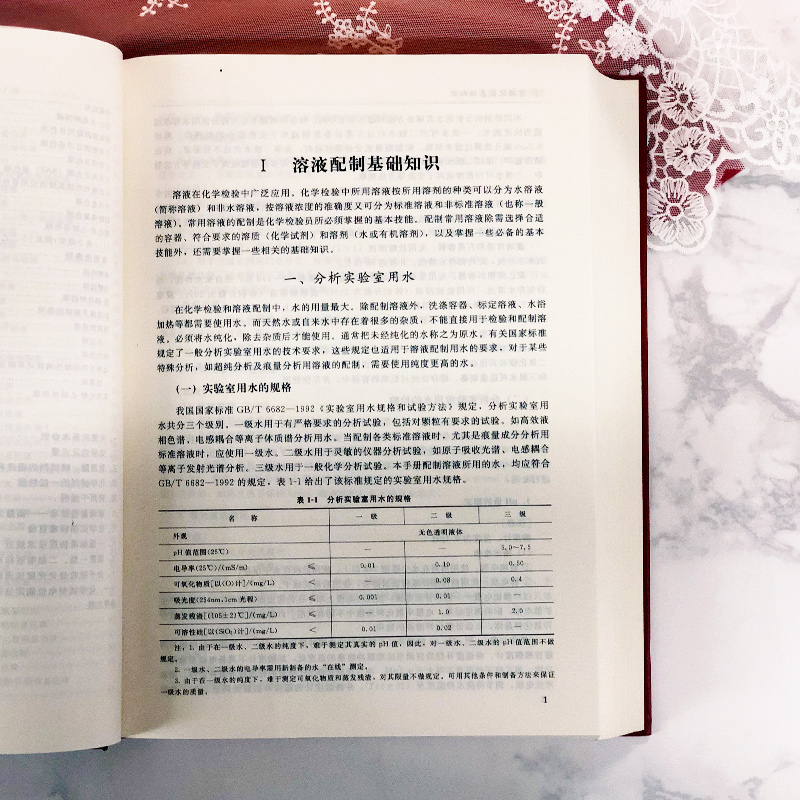 I 溶液配制基础知识
溶液在化学检验中广泛应用。化学检验中所用溶液按所用溶剂的种类可以分为水溶液
(简称溶液)和非水溶液,按溶液浓度的准确度又可分为标准溶液和非标准溶液(也称一般
溶液)。常用溶液的配制是化学检验员所必须掌握的基本技能。配制常用溶液除需选择合适
的容器、符合要求的溶质(化学试剂)和溶剂(水或有机溶剂),以及掌握一些必备的基本
技能外,还需要掌握一些相关的基础知识。
一、分析实验室用水
在化学检验和溶液配制中,水的用量最大。除配制溶液外,洗涤容器、标定溶液、水浴
加热等都需要使用水。而天然水或自来水中存在着很多的杂质,不能直接用于检验和配制溶
液,必须将水纯化,除去杂质后才能使用。通常把未经纯化的水称之为原水。有关国家标准
规定了一般分析实验室用水的技术要求,这些规定也适用于溶液配制用水的要求,对于某些
特殊分析,如超纯分析及痕量分析用溶液的配制,需要使用纯度更高的水。
(一)实验室用水的规格
我国国家标准 GB/T 6682—1992《实验室用水规格和试验方法》规定,分析实验室用
水共分三个级别。一级水用于有严格要求的分析试验,包括对颗粒有要求的试验。如高效液
相色谱、电感耦合等离子体质谱分析用水。当配制各类标准溶液时,尤其是痕量成分分析用
标准溶液时,应使用一级水。二级水用于灵敏的仪器分析试验,如原子吸收光谱、电感耦合
等离子发射光谱分析。三级水用于一般化学分析试验。本手册配制溶液所用的水,均应符合
GB/T 6682—1992 的规定,表 1-1 给出了该标准规定的实验室用水规格。
表 1-1 分析实验室用水的规格
名 称 一 级 二 级 三 级
外观 无色透明液体
pH 值范围(25℃) — — 5.0~7.5
电导率(25℃)/(mS/m) ≤ 0.01 0.10 0.50
可氧化物质[以(O)计]/(mg/L) < — 0.08 0.4
吸光度(254nm,1cm 光程) ≤ 0.001 0.01 —
蒸发残渣[(105±2)℃]/(mg/L) ≤ — 1.0 2.0
可溶性硅[以(SiO₂)计]/(mg/L) < 0.01 0.02 —
注:1. 由于在一级水、二级水的纯度下,难于测定其真实的 pH 值,因此,对一级水、二级水的 pH 值范围不做
规定。
2. 一级水、二级水的电导率需用新制备的水“在线”测定。
3. 由于在一级水的纯度下,难于测定可氧化物质和蒸发残渣,对其限量不做规定。可用其他条件和制备方法来保证
一级水的质量。
1